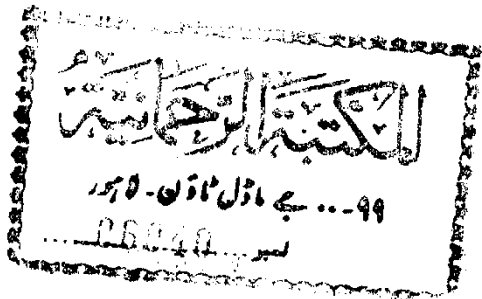 المكتبة الرحمانية
۹۹-.. جے ماڈل ٹاؤن - لاہور
نمبر